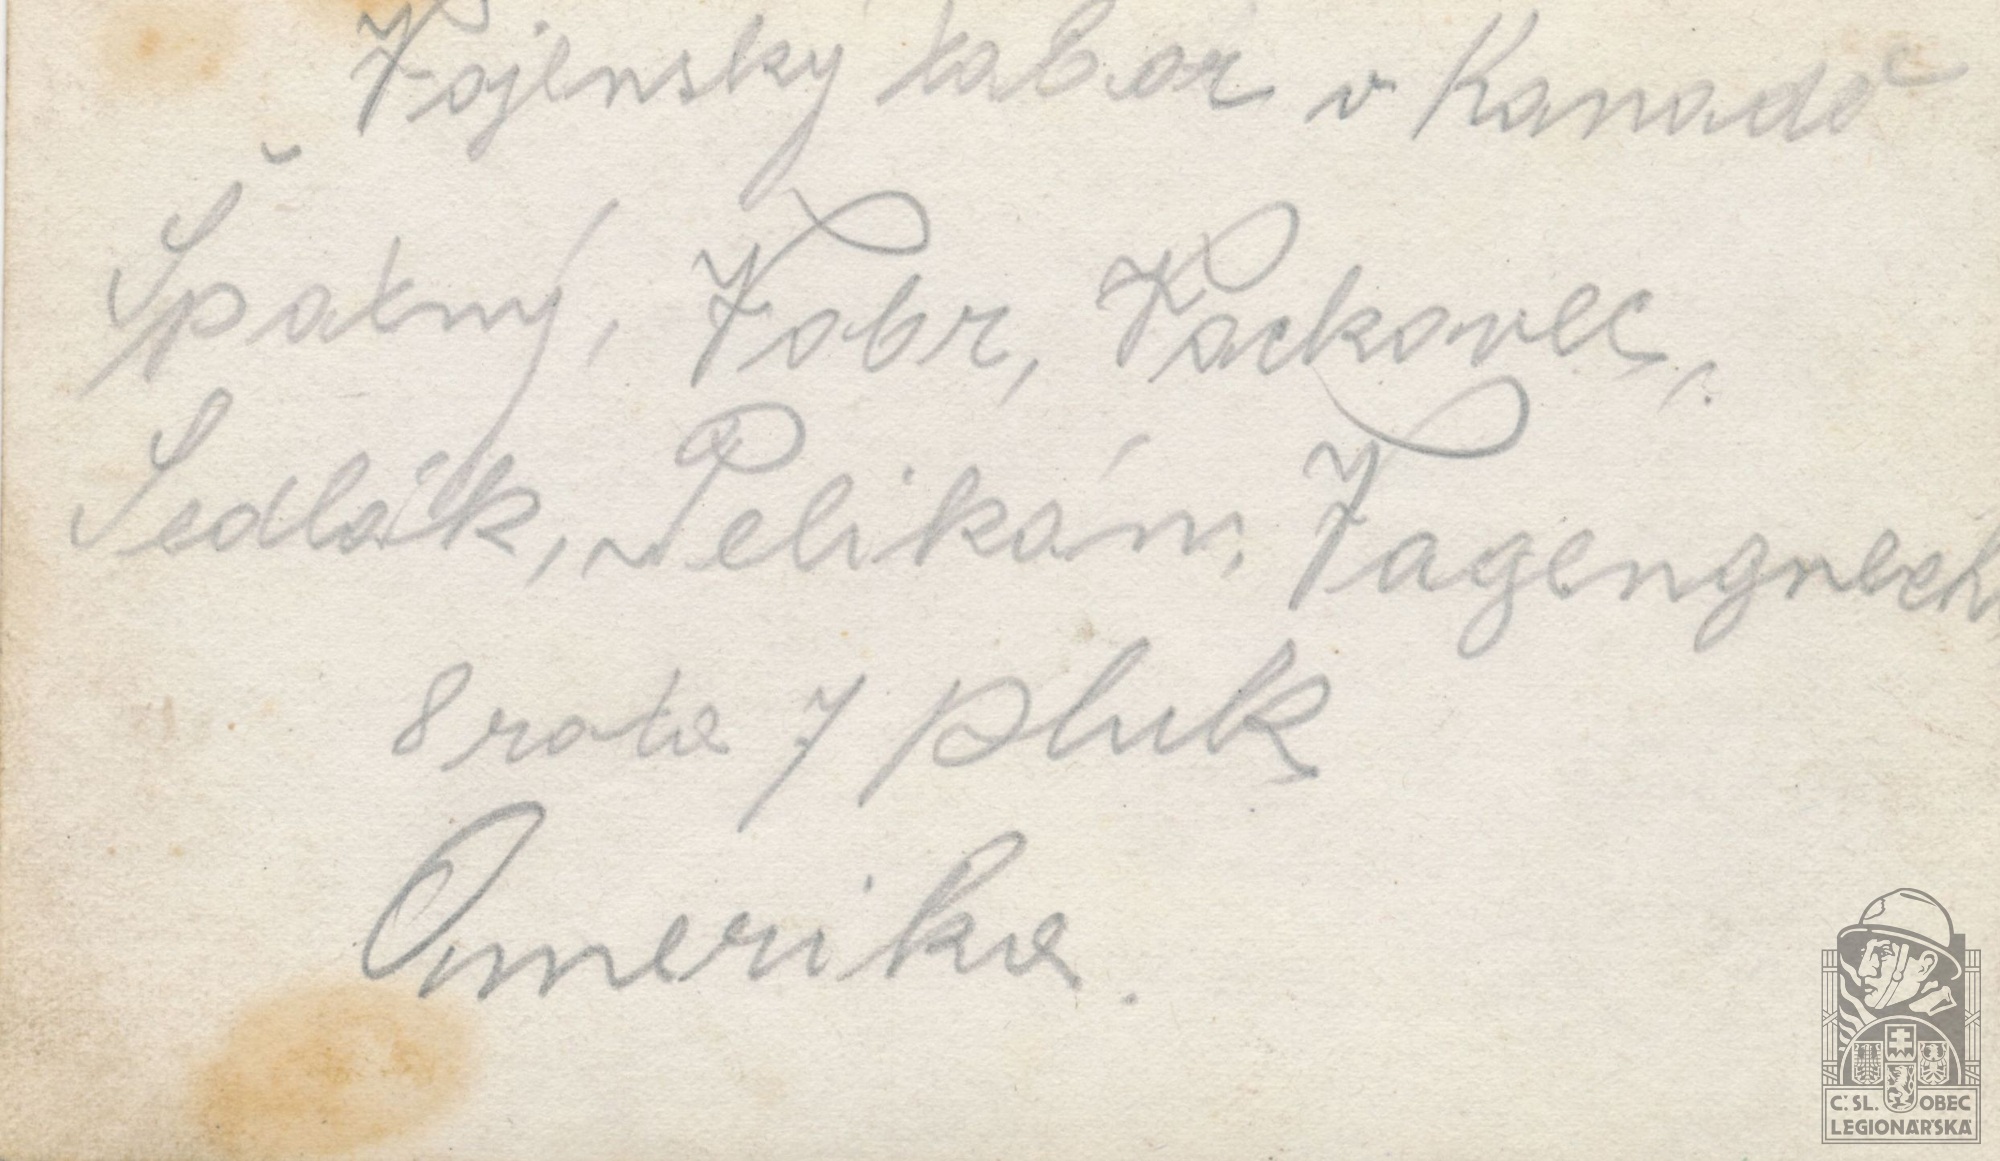 Vojensky tabor v Kanadě
Špatný, Vobr, Vackovec,
Sedlák, Pelikán,
8 rota 7 pluk
Amerika.
Č.SL. OBEC
LEGIONÁŘSKÁ